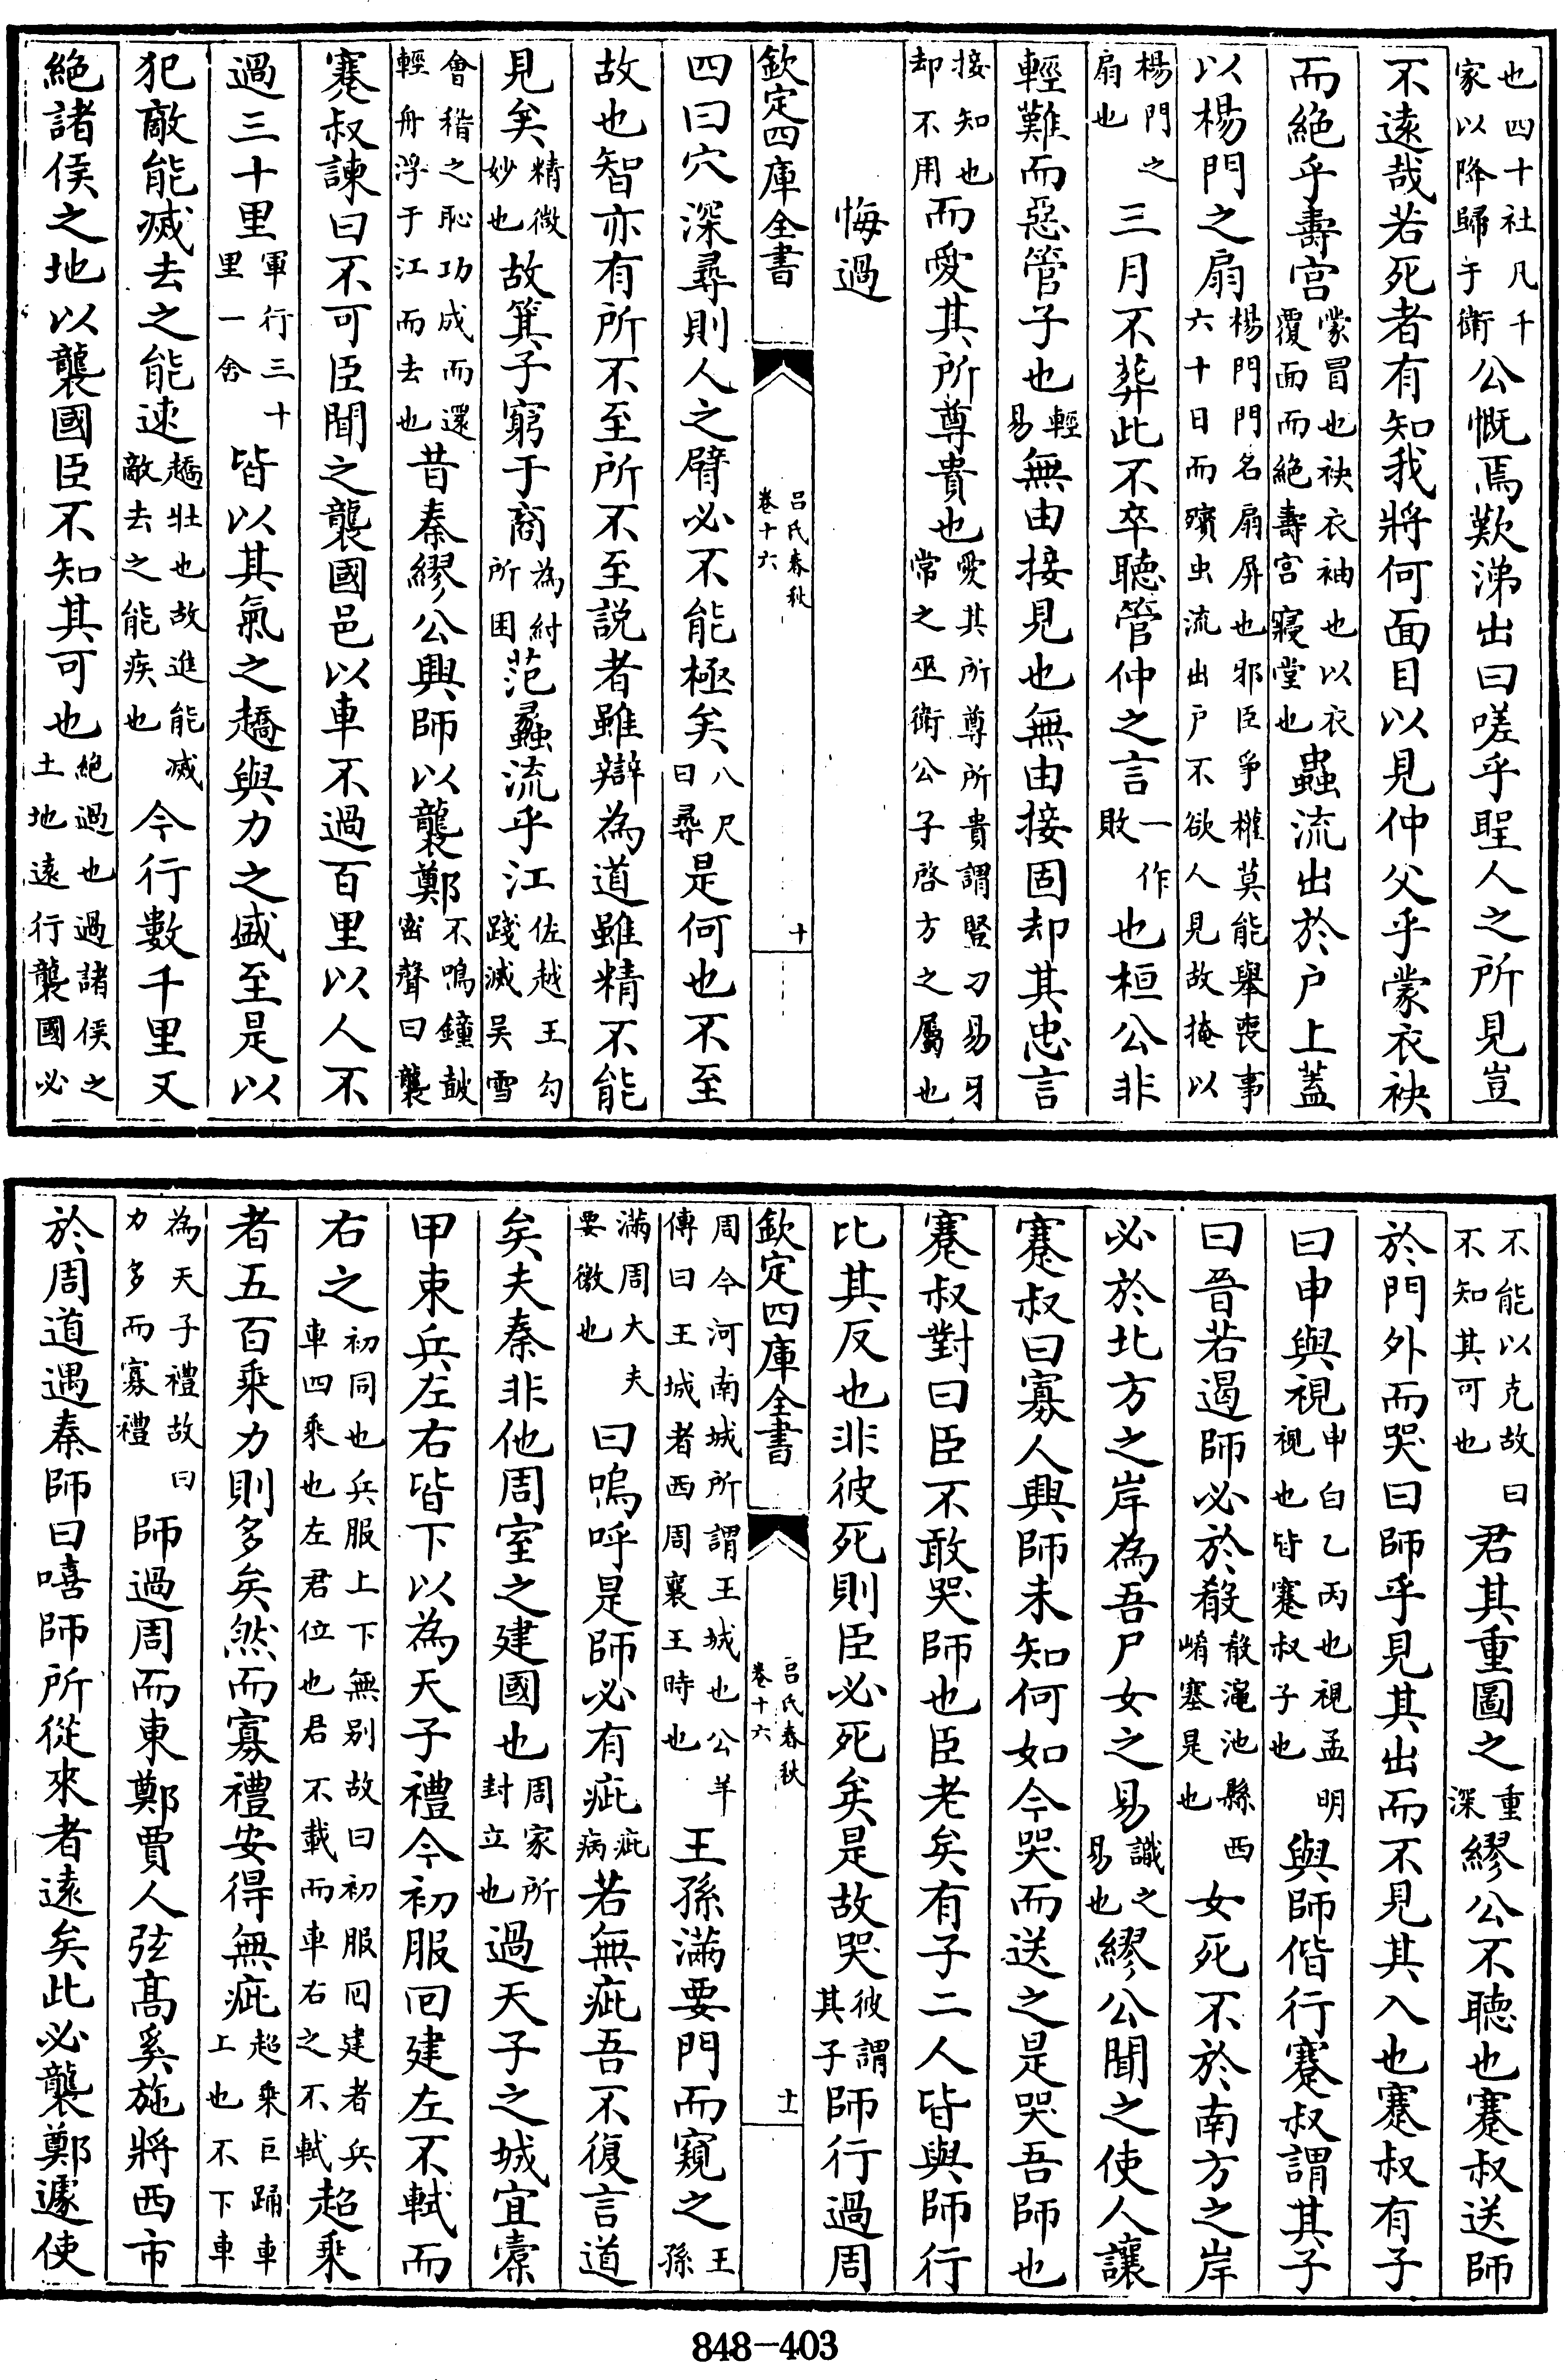 也四十社凡千家以降歸于衛公慨焉歎涕出曰嗟乎聖人之所見豈
不遠哉若死者有知我將何面目以見仲父乎蒙衣袂
而絶乎壽宫蒙冒也袂衣袖也以衣覆面而絶壽宫寢堂也蟲流出於户上蓋
以楊門之扇楊門門名扇屏也邪臣爭權莫能舉喪事六十日而殯虫流出户不欲人見故掩以
楊門之扇也三月不葬此不卒聽管仲之言一作敗也桓公非
輕難而惡管子也輕易無由接見也無由接固却其忠言
接知也却不用而愛其所尊貴也愛其所尊所貴謂豎刁易牙常之巫衛公子啓方之屬也
悔過
欽定四庫全書
吕氏春秋
卷十六
十
四曰穴深尋則人之臂必不能極矣八尺曰尋是何也不至
故也智亦有所不至所不至説者雖辯為道雖精不能
見矣精微妙也故箕子窮于商為紂所困范蠡流乎江佐越王勾踐滅吴雪
會稽之恥功成而還輕舟浮于江而去也昔秦繆公興師以襲鄭不鳴鐘鼓密聲曰襲
蹇叔諫曰不可臣聞之襲國邑以車不過百里以人不
過三十里軍行三十里一舍皆以其氣之趫與力之盛至是以
犯敵能滅去之能速趫壯也故進能滅敵去之能疾也今行數千里又
絶諸侯之地以襲國臣不知其可也絶過也過諸侯之土地逺行襲國必
不能以克故曰不知其可也君其重圖之重深繆公不聽也蹇叔送師
於門外而哭曰師乎見其出而不見其入也蹇叔有子
曰申與視申白乙丙也視孟明視也皆蹇叔子也與師偕行蹇叔謂其子
曰晉若遏師必於殽殽澠池縣西崤塞是也女死不於南方之岸
必於北方之岸為吾尸女之易識之易也繆公聞之使人讓
蹇叔曰寡人興師未知何如今哭而送之是哭吾師也
蹇叔對曰臣不敢哭師也臣老矣有子二人皆與師行
比其反也非彼死則臣必死矣是故哭彼謂其子師行過周
欽定四庫全書
吕氏春秋
卷十六
十一
周今河南城所謂王城也公羊傳曰王城者西周襄王時也王孫滿要門而窺之王孫
滿周大夫要徼也曰嗚呼是師必有疵疵病若無疵吾不復言道
矣夫秦非他周室之建國也周家所封立也過天子之城宜櫜
甲束兵左右皆下以為天子禮今初服回建左不軾而
右之初同也兵服上下無别故曰初服回建者兵車四乘也左君位也君不載而車右之不軾超乘
者五百乘力則多矣然而寡禮安得無疵超乘巨踊車上也不下車
為天子禮故曰力多而寡禮師過周而東鄭賈人弦高奚施將西市
於周道遇秦師曰嘻師所從來者遠矣此必襲鄭遽使
848-403